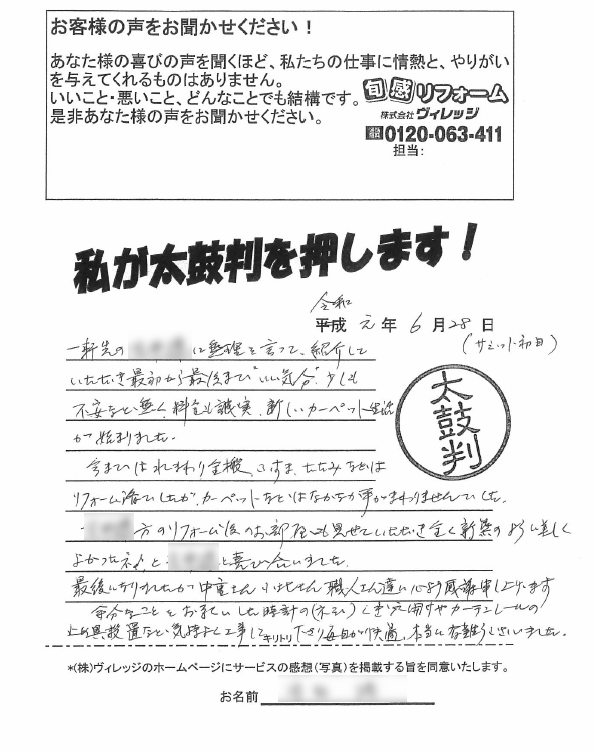 お客様の声をお聞かせください！
あなた様の喜びの声を聞くほど、私たちの仕事に情熱と、やりがい
を与えてくれるものはありません。
いいこと・悪いこと、どんなことでも結構です。
是非あなた様の声をお聞かせください。
旬感リフォーム
株式会社ヴィレッジ
0120-063-411
担当:
私が太鼓判を押します！
令和
平成 元年 6月28日
(サミット初日)
太鼓判
一軒先の に無理を言って、紹介して
いただき最初から最後まで"いい気分"少しも
不安など無く、料金も誠実、新しいカーペット生活
が始まりました。
今まで水まわり全般、ふすま、たたみなどは
リフォーム済でしたが、カーペットなどはなかなか手がまわりませんでした。
方のリフォーム後のお部屋も見せていただき全く新築の様に美しく
よかったネと と喜び合いました。
最後になりましたが 職人さん達に心より感謝申し上げます
余分なこと 時計の カーテンレールの
設置など気持よく工事して下さり毎日が快適、本当に有難うございました。
キリトリ
*(株)ヴィレッジのホームページにサービスの感想(写真)を掲載する旨を同意いたします。
お名前